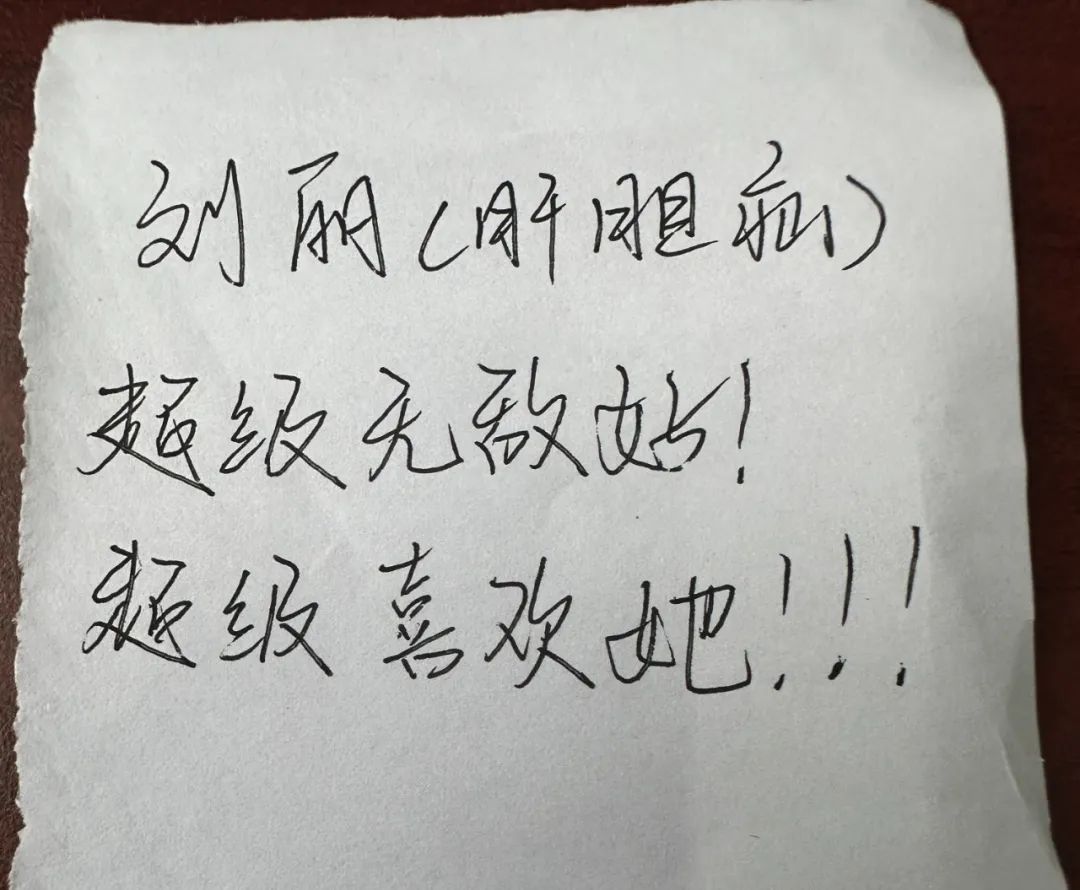 刘丽(肝胆疝)
超级无敌好!
超级喜欢她!!!